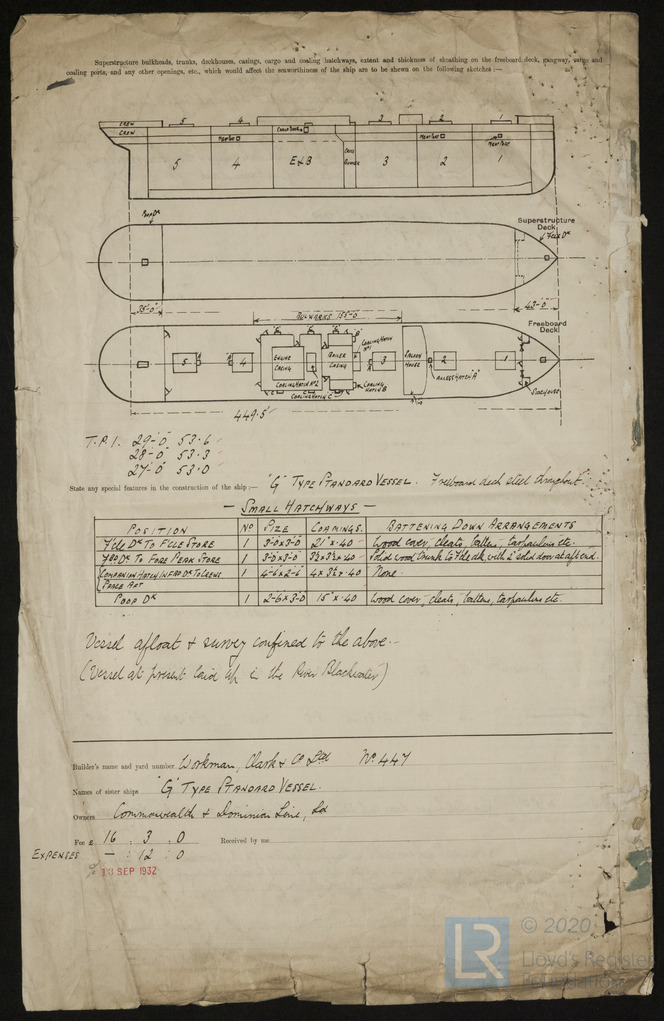 Superstructure bulkheads, trunks, deckhouses, casings, cargo and coaling hatchways, extent and thickness of sheathing on the freeboard deck, gangway, cargo and
coaling ports, and any other openings, etc., which would affect the seaworthiness of the ship are to be shewn on the following sketches :—
5 4 3 2 1
CREW
CREW
5 4 E&B 3 2 1
Poop Dk
Superstructure
Deck
F'cle Dk
35-0 43-0
BULWARKS 155-0
Freeboard
Deck
5 4 ENGINE CASING BOILER CASING 3 SALOON HOUSE 2 1
COALING HATCH No 1
COALING HATCH No 2
COALING HATCH B
COALING HATCH C
ACCESS HATCH "A"
STOREHOUSE
449.5'
T.P.I. 29-0 53.6
28-0 53.3
27-0 53.0
State any special features in the construction of the ship :— "G" TYPE STANDARD VESSEL. Freeboard deck steel throughout.
— SMALL HATCHWAYS —
POSITION No SIZE COAMINGS. BATTENING DOWN ARRANGEMENTS
F'cle Dk TO F'CLE STORE 1 3-0x3-0 21" x .40 Wood cover, cleats, battens, tarpaulins etc.
TO FORE PEAK STORE 1 3-0x3-0 3½x3½x.40 Solid wood trunk to F'cle dk, with 2" solid door at aft end.
COMPANION HATCH IN FBD DK TO CREWS 1 4-6x2-6 4x3½x.40 None.
SPACE AFT
POOP DK 1 2-6x3-0 15" x .40 Wood cover, cleats, battens, tarpaulins etc.
Vessel afloat & survey confined to the above.
(Vessel at present laid up in the River Blackwater)
Builder's name and yard number Workman, Clark & Co Ltd No 447
Names of sister ships "G" TYPE STANDARD VESSEL.
Owners Commonwealth & Dominion Line, Ld
Fee £ 16 : 3 : 0 Received by me
EXPENSES — : 12 : 0
13 SEP 1932
LR
© 2020
Lloyd's Register
Foundation